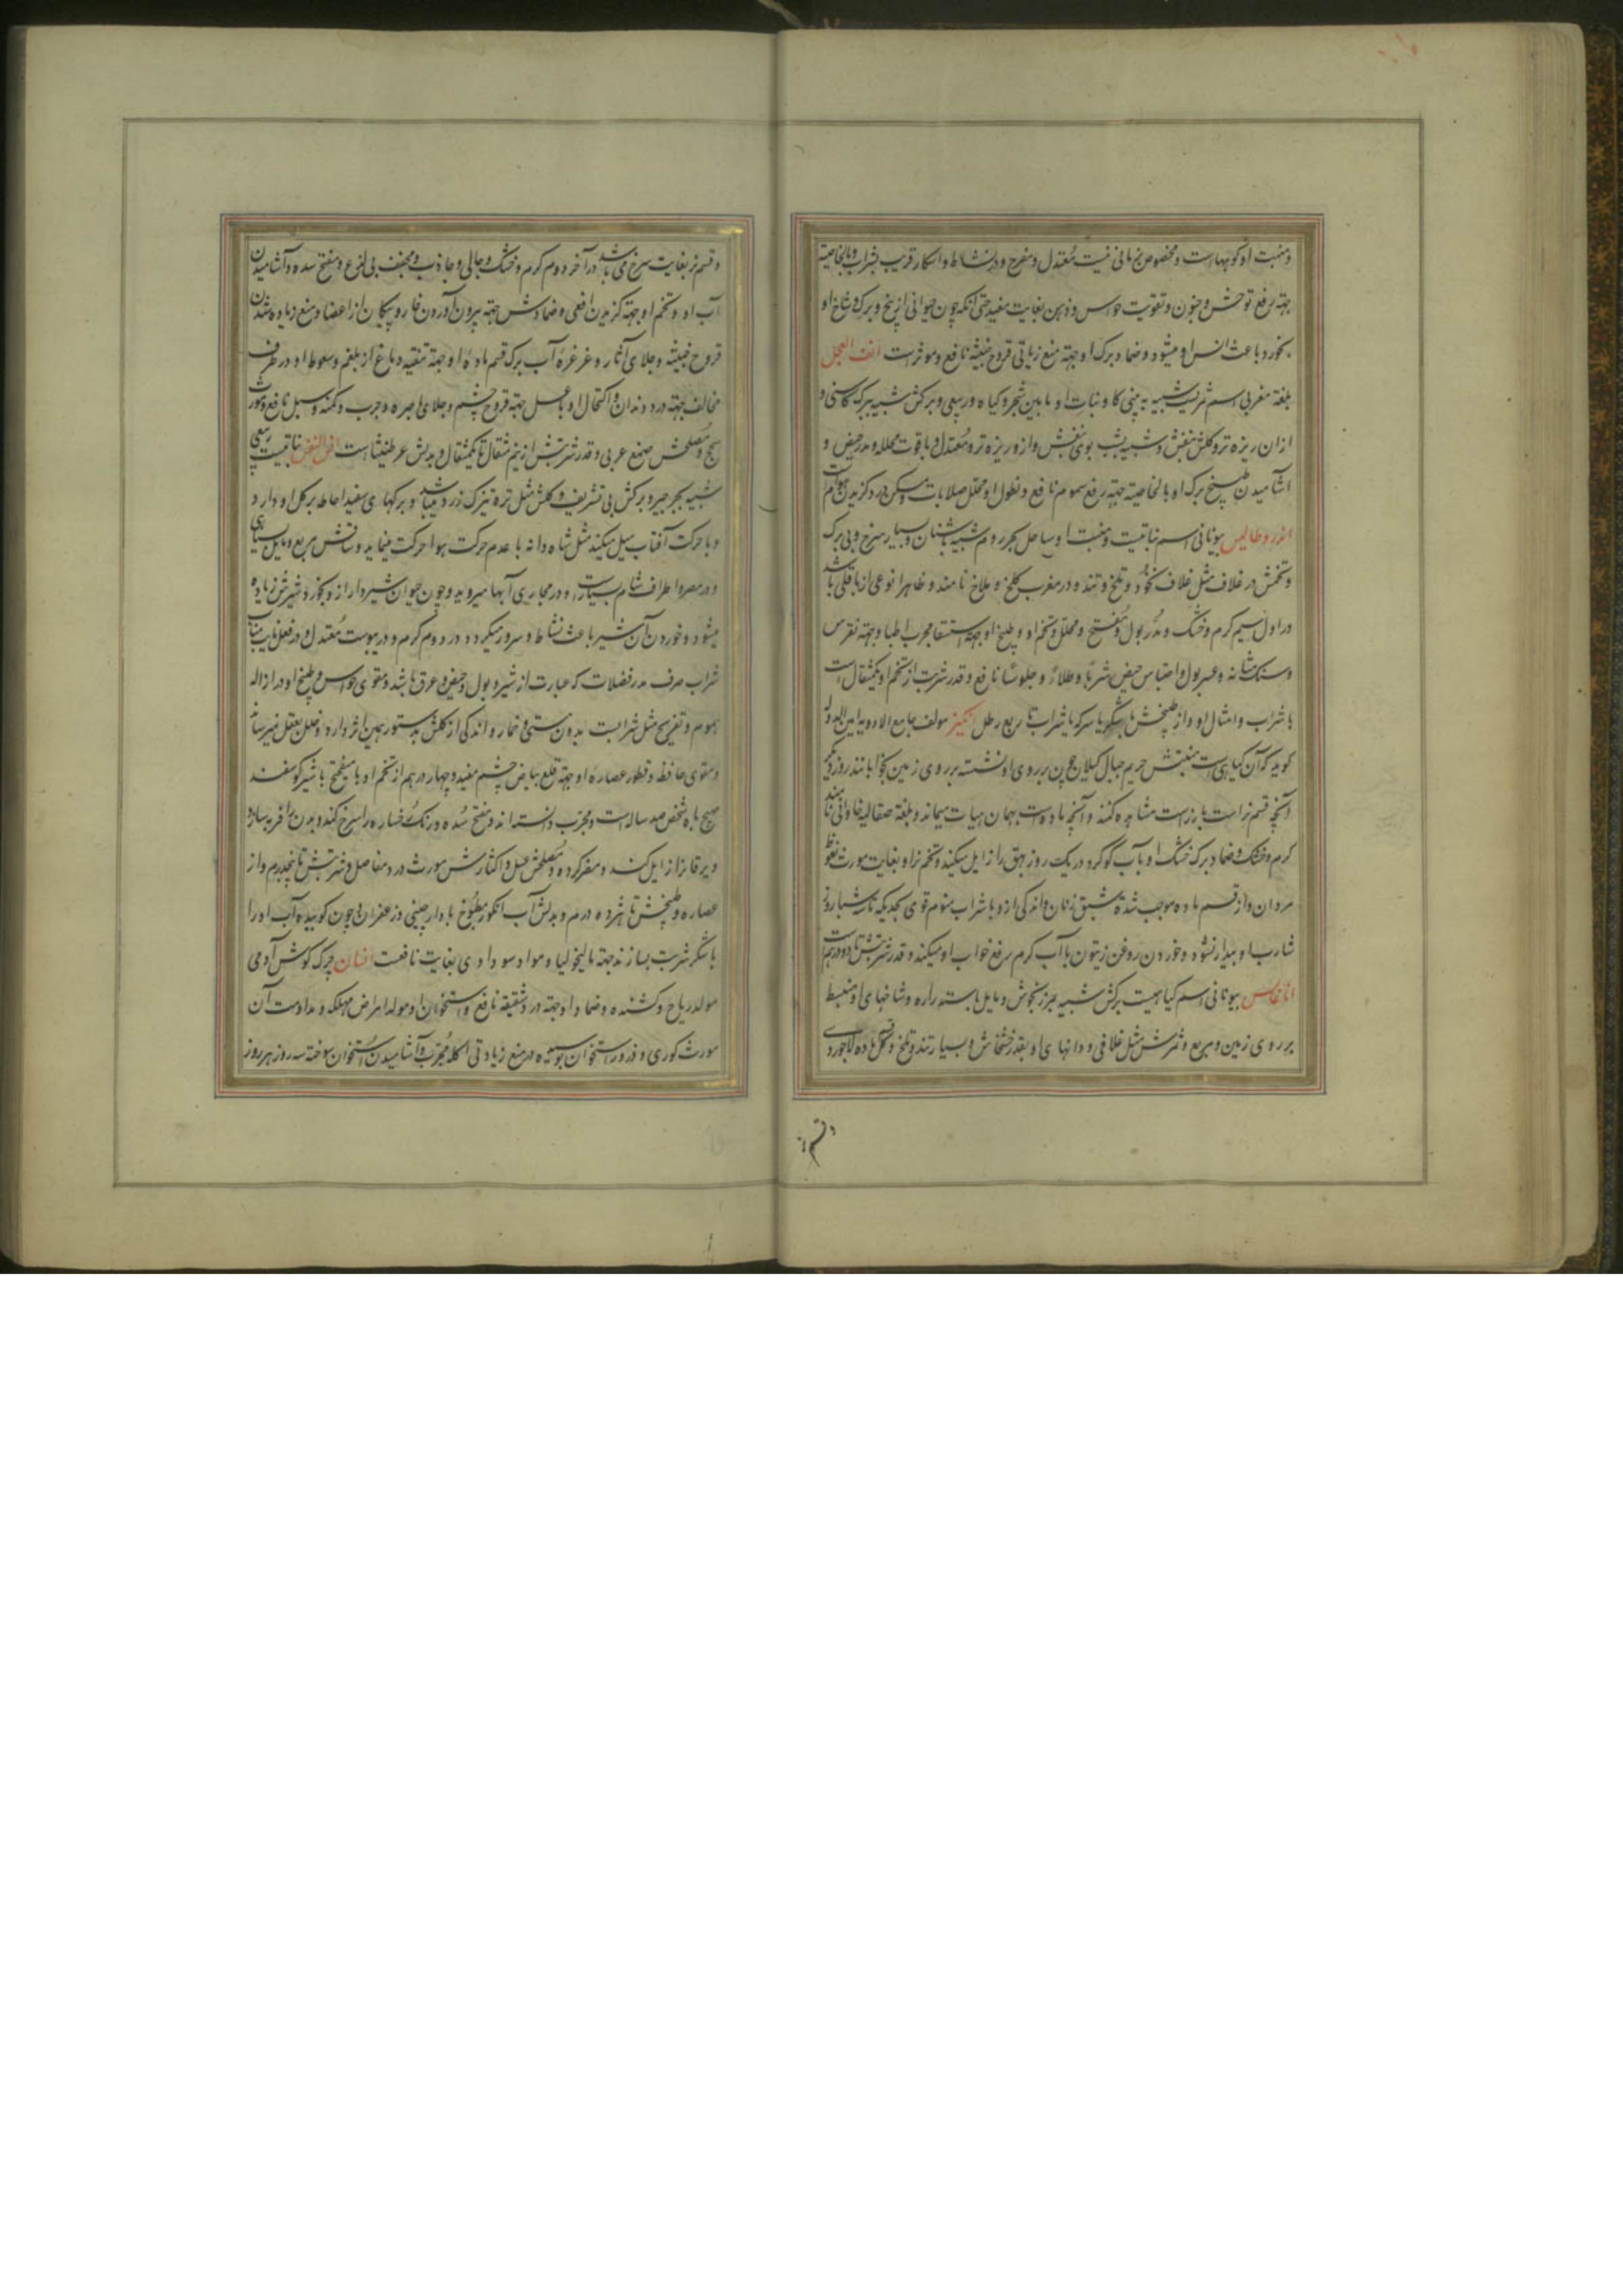 ومنبت او کوبهاست ومخصوص زمانی نیست معتدل ومفرح ودر نشاط واسکار قریب بشراب وبالخاصیة
جهة رفع توحش وجنون وتقویت حواس وذهن بغایت مفید حتی آنکه چون حیوانی از بیخ وبرک وشاخ او
بخورد باعث انس او میشود وضماد برک او جهة منع زیاتی قروح خبیثه نافع وموثر است انف العجل
بلغة مغربی اسم ثمریست شبیه به بینی کاو ونبات او مابین شجر وکیاه وربیعی وبرکش شبیه ببرک کاسنی و
ازان ریزه تر وکلش بنفش وشبیه بشب بوی بنفش وازو ریزه تر ومعتدل وباقوت محلله ومدر حیض و
آشامیدن طبیخ برک او بالخاصیة جهة رفع سموم نافع ونطول او محلل صلابات ومسکن درد کزیدن هوام است
اندروطالیس یونانی اسم نباتیست ومنبت او ساحل بحر روم شبیه باشنان وبسیار سرخ وبی برک
وتخمش در غلاف مثل غلاف نخود وتلخ وتند ودر مغرب کلخ وملاخ نامند وظاهرا نوعی از باقلی باشد
در اول سیم کرم وخشک ومدر بول ومفتح ومحلل وتخم او وطبیخ او جهة استسقا مجرب اطبا وجهة نقرس
وسنک مثانه وعسر بول واحتباس حیض شربا وطلاء وجلوسا نافع وقدر شربت از تخم او یکمثقال است
با شراب وامثال او واز طبیخش با شکر یا سرکه یا شراب تا ربع رطل انکیز مولف جامع الادویه امین الدوله
کوید که آن کیاهی است منبتش حریم جبال کیلان چون بر روی او نشسته بر روی زمین بخوابانند روز دیکر
آنچه قسم نر است بارز است مشاهده کنند وآنچه ماده است بهمان هیات میماند وبلغة صقالیه خاوانی نامند
کرم وخشک وضماد برک خشک او با آب کوکرد در یک روز بهق را زایل میکند وتخم نر او بغایت مورث نعوظ
مردان واز قسم ماده موجب شدة شبق زنان واندکی ازو با شراب منوم قوی بحدیکه تا سه شبانروز
شارب او بیدار نشود وخوردن روغن زیتون با آب کرم رفع خواب او میکند وقدر شربتش تا دو درهم است
اناغالس یونانی اسم کیاهیست برکش شبیه بمرزنجوش ومایل باستداره وشاخهای او منبسط
بر روی زمین ومربع وثمرش مثل غلافی ودانهای او بقدر خشخاش وبسیار تند وتلخ وکل ماده لاجوردی
وقسم
وقسم نر بغایت سرخ می باشد در آخر دوم کرم وخشک وجالی وجاذب ومجفف بی لذع ومفتح سده وآشامیدن
آب او وتخم او جهة کزیدن افعی وضمادش جهة بیرون آوردن خار وپیکان از اعضا ومنع زیاده شدن
قروح خبیثه وجلای آثار وغرغرۀ آب برک قسم مادۀ او جهة تنقیه دماغ از بلغم وسعوط او در طرف
مخالف جهة درد دندان واکتحال او با عسل جهة قروح چشم وجلای باصره وجرب ودمعه وسبل نافع ومورث
سحج ومصلحش صمغ عربی وقدر شربتش از نیم مثقال تا یکمثقال وبدلش عرطنیثا است نباتیست ربیعی
شبیه بجرجیر وبرکش بی تشریف وکلش مثل تره تیزک زرد میباشد وبرکهای سفید احاطه بر کل او دارد
وبا حرکت آفتاب میل میکند مثل شاه دانه با عدم حرکت هوا حرکت مینماید وساقش مربع ومایل بسیاهی
ودر مصر واطراف شام بسیار است ودر مجاری آبها میروید وچون حیوان شیردار ازو بخورد شیرش زیاده
میشود وخوردن آن شیر باعث نشاط وسرور میکردد در دوم کرم ودر یبوست معتدل ودر فعل نایب مناب
شراب صرف مدر فضلات که عبارت از شیر وبول وحیض وعرق باشد ومقوی حواس وطبیخ او در ازاله
هموم وتفریح مثل شرابست بدون مستی وخمار واندکی از کلش بدستور همین اثر دارد وخلل بعقل نمیرساند
ومقوی حافظه وقطور عصارۀ او جهة قلع بیاض چشم مفید وچهار درهم از تخم او با میفختج با شیر کوسفند
مهیج باه شخص صد ساله است ومجرب دانسته اند ومفتح سده ورنک رخساره را سرخ کند وبدن را فربه سازد
ویرقان را زایل کند ومضر کرده ومصلحش عسل واکثارش مورث درد مفاصل وشربتش تا پنجدرم واز
عصاره وطبیخش تا هژده درم وبدلش آب انکور مطبوخ با دارچینی وزعفران وچون کوبیده آب او را
با شکر شربت بسازند جهة مالیخولیا ومواد سوداوی بغایت نافعست انسان چرک کوش آدمی
مولد ریاح وکشنده وضماد او جهة درد شقیقه نافع واستخوان او مولد امراض مهلکه ومداومت آن
مورث کوری وذرور استخوان پوسیده در منع زیادتی اکله مجرب وآشامیدن استخوان سوخته سه روز هر روز